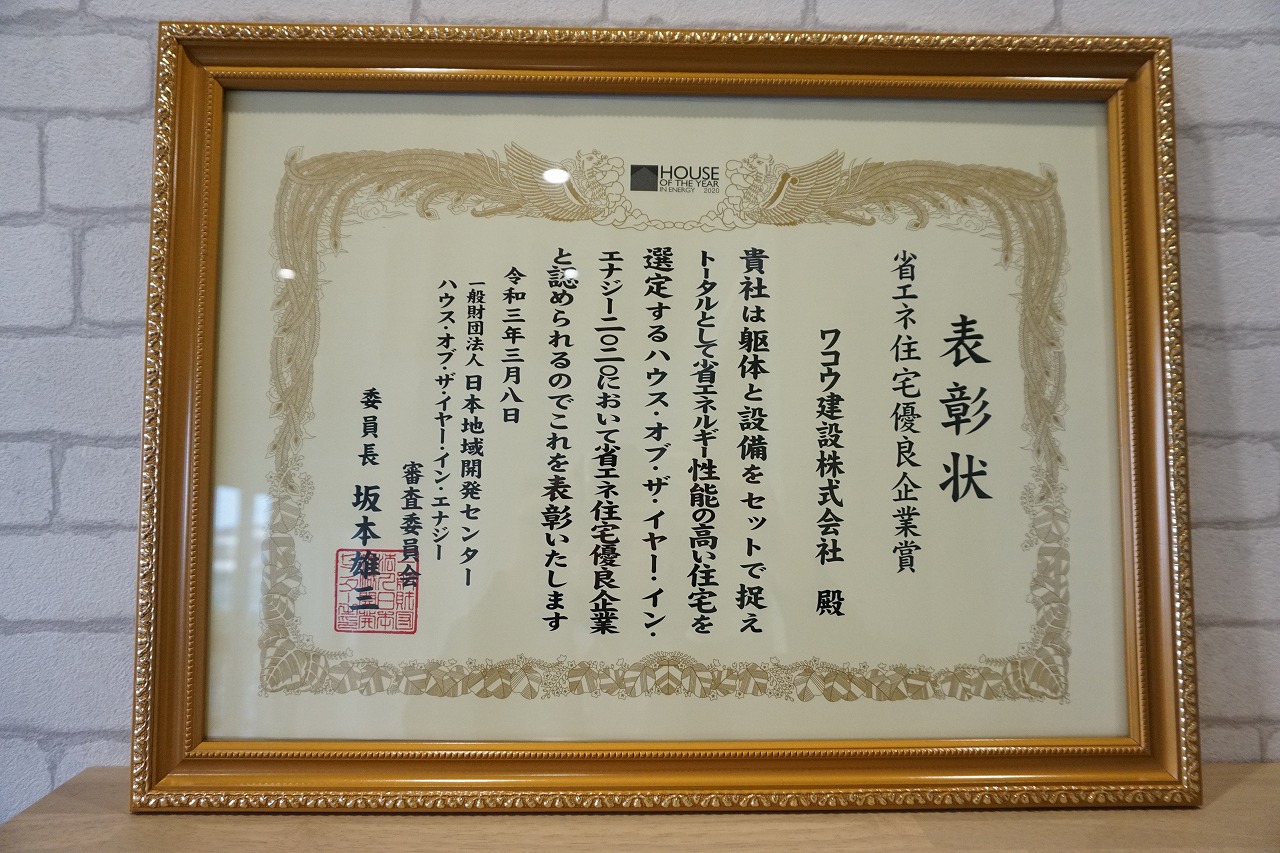 HOUSE
OF THE YEAR
IN ENERGY 2020
表彰状
省エネ住宅優良企業賞
ワコウ建設株式会社 殿
貴社は躯体と設備をセットで捉え
トータルとして省エネルギー性能の高い住宅を
選定するハウス・オブ・ザ・イヤー・イン・
エナジー二〇二〇において省エネ住宅優良企業
と認められるのでこれを表彰いたします
令和三年三月八日
一般財団法人 日本地域開発センター
ハウス・オブ・ザ・イヤー・イン・エナジー
審査委員会
委員長 坂本雄三